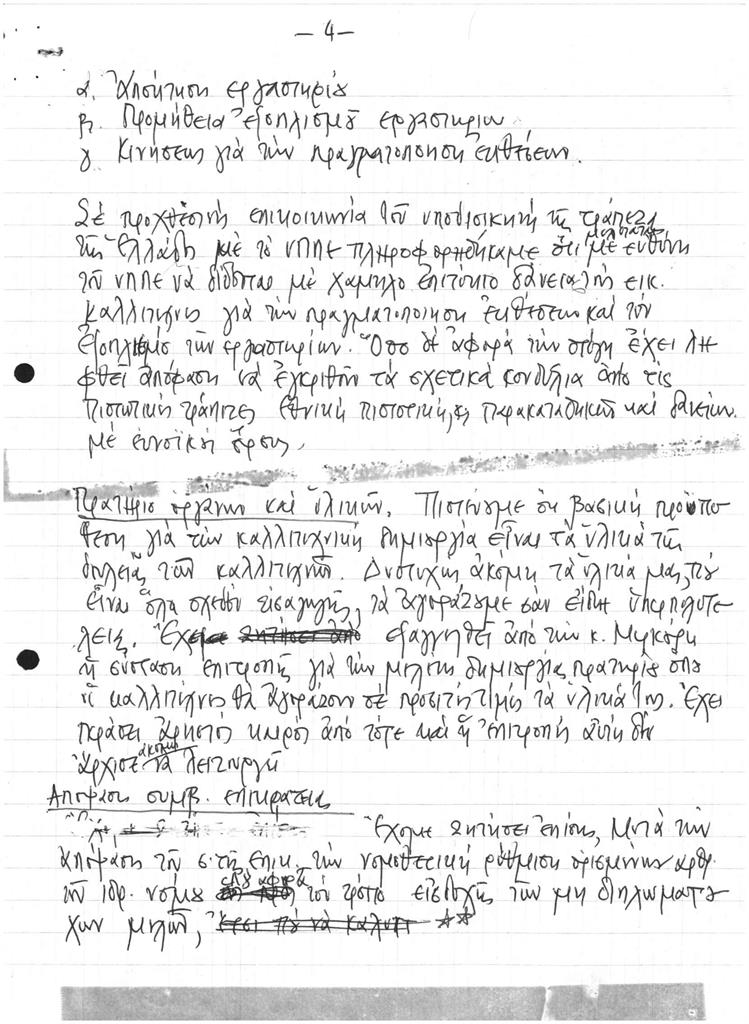 — 4 —
α. Ἀπόκτηση ἐργαστηρίου
β. Προμήθεια ἐξοπλισμοῦ ἐργαστηρίων
γ. Κινήσεις γιά τήν πραγματοποίηση ἐκθέσεων.
Σέ προχθεσινή ἐπικοινωνία τοῦ ὑποδιοικητῆ τῆς τράπεζας
τῆς Ἑλλάδος μέ τό ΥΠΠΕ πληροφορηθήκαμε ὅτι μέ εὐθύνη
τοῦ ΥΠΠΕ νά δίδονται μέ χαμηλό ἐπιτόκιο δάνεια στούς εἰκ.
καλλιτέχνες γιά τήν πραγματοποίηση ἐκθέσεων καί τόν
ἐξοπλισμό τῶν ἐργαστηρίων. Ὅσο δέ ἀφορᾶ τήν στέγη ἔχει λη
φθεῖ ἀπόφαση νά ἐγκριθοῦν τά σχετικά κονδύλια ἀπό τίς
πιστωτικές τράπεζες ἐθνική κτηματική, παρακαταθηκῶν καί δανείων
μέ εὐνοϊκούς ὅρους.
Πρατήριο ὀργάνων καί ὑλικῶν. Πιστεύουμε ὅτι βασική προϋπό
θεση γιά τήν καλλιτεχνική δημιουργία εἶναι τά ὑλικά τῆς
δουλειᾶς τῶν καλλιτεχνῶν. Δυστυχῶς ἀκόμη τά ὑλικά μας, πού
εἶναι ὅλα σχεδόν εἰσαγωγῆς, τά ἀγοράζουμε σάν εἴδη ὑπερπολυτε
λείας. Ἔχει ἐξαγγελθεῖ ἀπό τήν κ. Μερκούρη
ἡ σύσταση ἐπιτροπῆς γιά τήν μελέτη δημιουργίας πρατηρίου ὅπου
οἱ καλλιτέχνες θά ἀγοράζουν σέ προσιτές τιμές τά ὑλικά τους. Ἔχει
περάσει ἀρκετός καιρός ἀπό τότε καί ἡ ἐπιτροπή αὐτή δέν
ἄρχισε ἀκόμη νά λειτουργεῖ
Ἀπόφαση συμβ. ἐπικρατείας
Ἔχομε ζητήσει ἐπίσης, μετά τήν
ἀπόφαση τοῦ σ. τῆς ἐπικ. τήν νομοθετική ρύθμιση ὁρισμένων ἄρθρ.
τοῦ ἱδρ. νόμου ὅσο ἀφορᾶ τόν τρόπο εἰσδοχῆς τῶν μή διπλωματού
χων μελῶν,